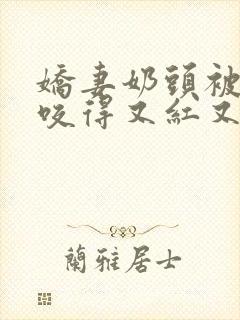 嬌妻奶頭被
咬得又紅又
蘭雅居士